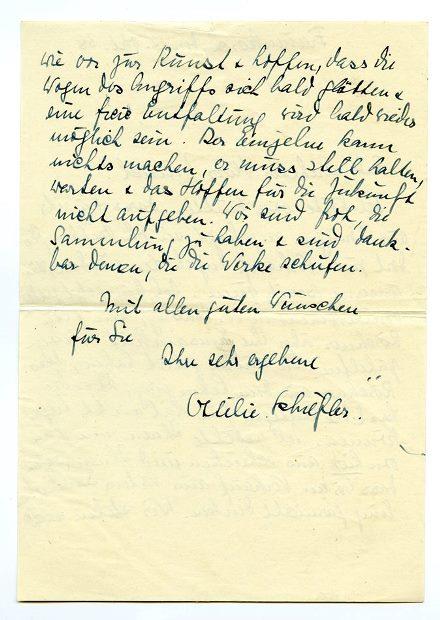 wie vor zur Kunst & hoffen, dass die
Wogen des Angriffs sich bald glätten &
eine freie Entfaltung wird bald wieder
möglich sein. Der Einzelne kann
nichts machen, er muss still halten,
warten & das Hoffen für die Zukunft
nicht aufgeben. Wir sind froh, die
Sammlung zu haben & sind dank-
bar denen, die die Werke schufen.
Mit allen guten Wünschen
für Sie
Ihre sehr ergebene
Ottilie Schiefler.